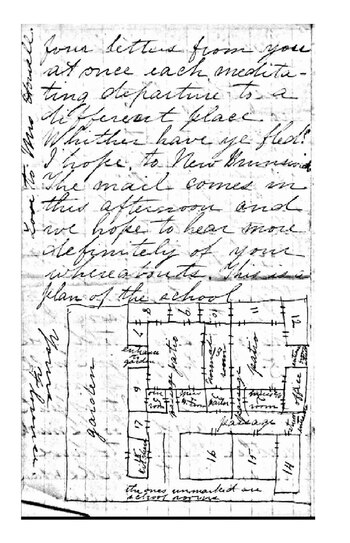 four letters from you
at once each medita-
ting departure to a
different place.
Whither have ye fled?
I hope to New Brunswick
The mail comes in
this afternoon and
we hope to hear more
definitely of your
whereabouts. This is a
plan of the school
Love to Mrs
garden
entrance to garden
patio
patio
passage
office
kitchen
7
8
9
10
11
12
6
17
16
15
14
the ones unmarked are
school rooms